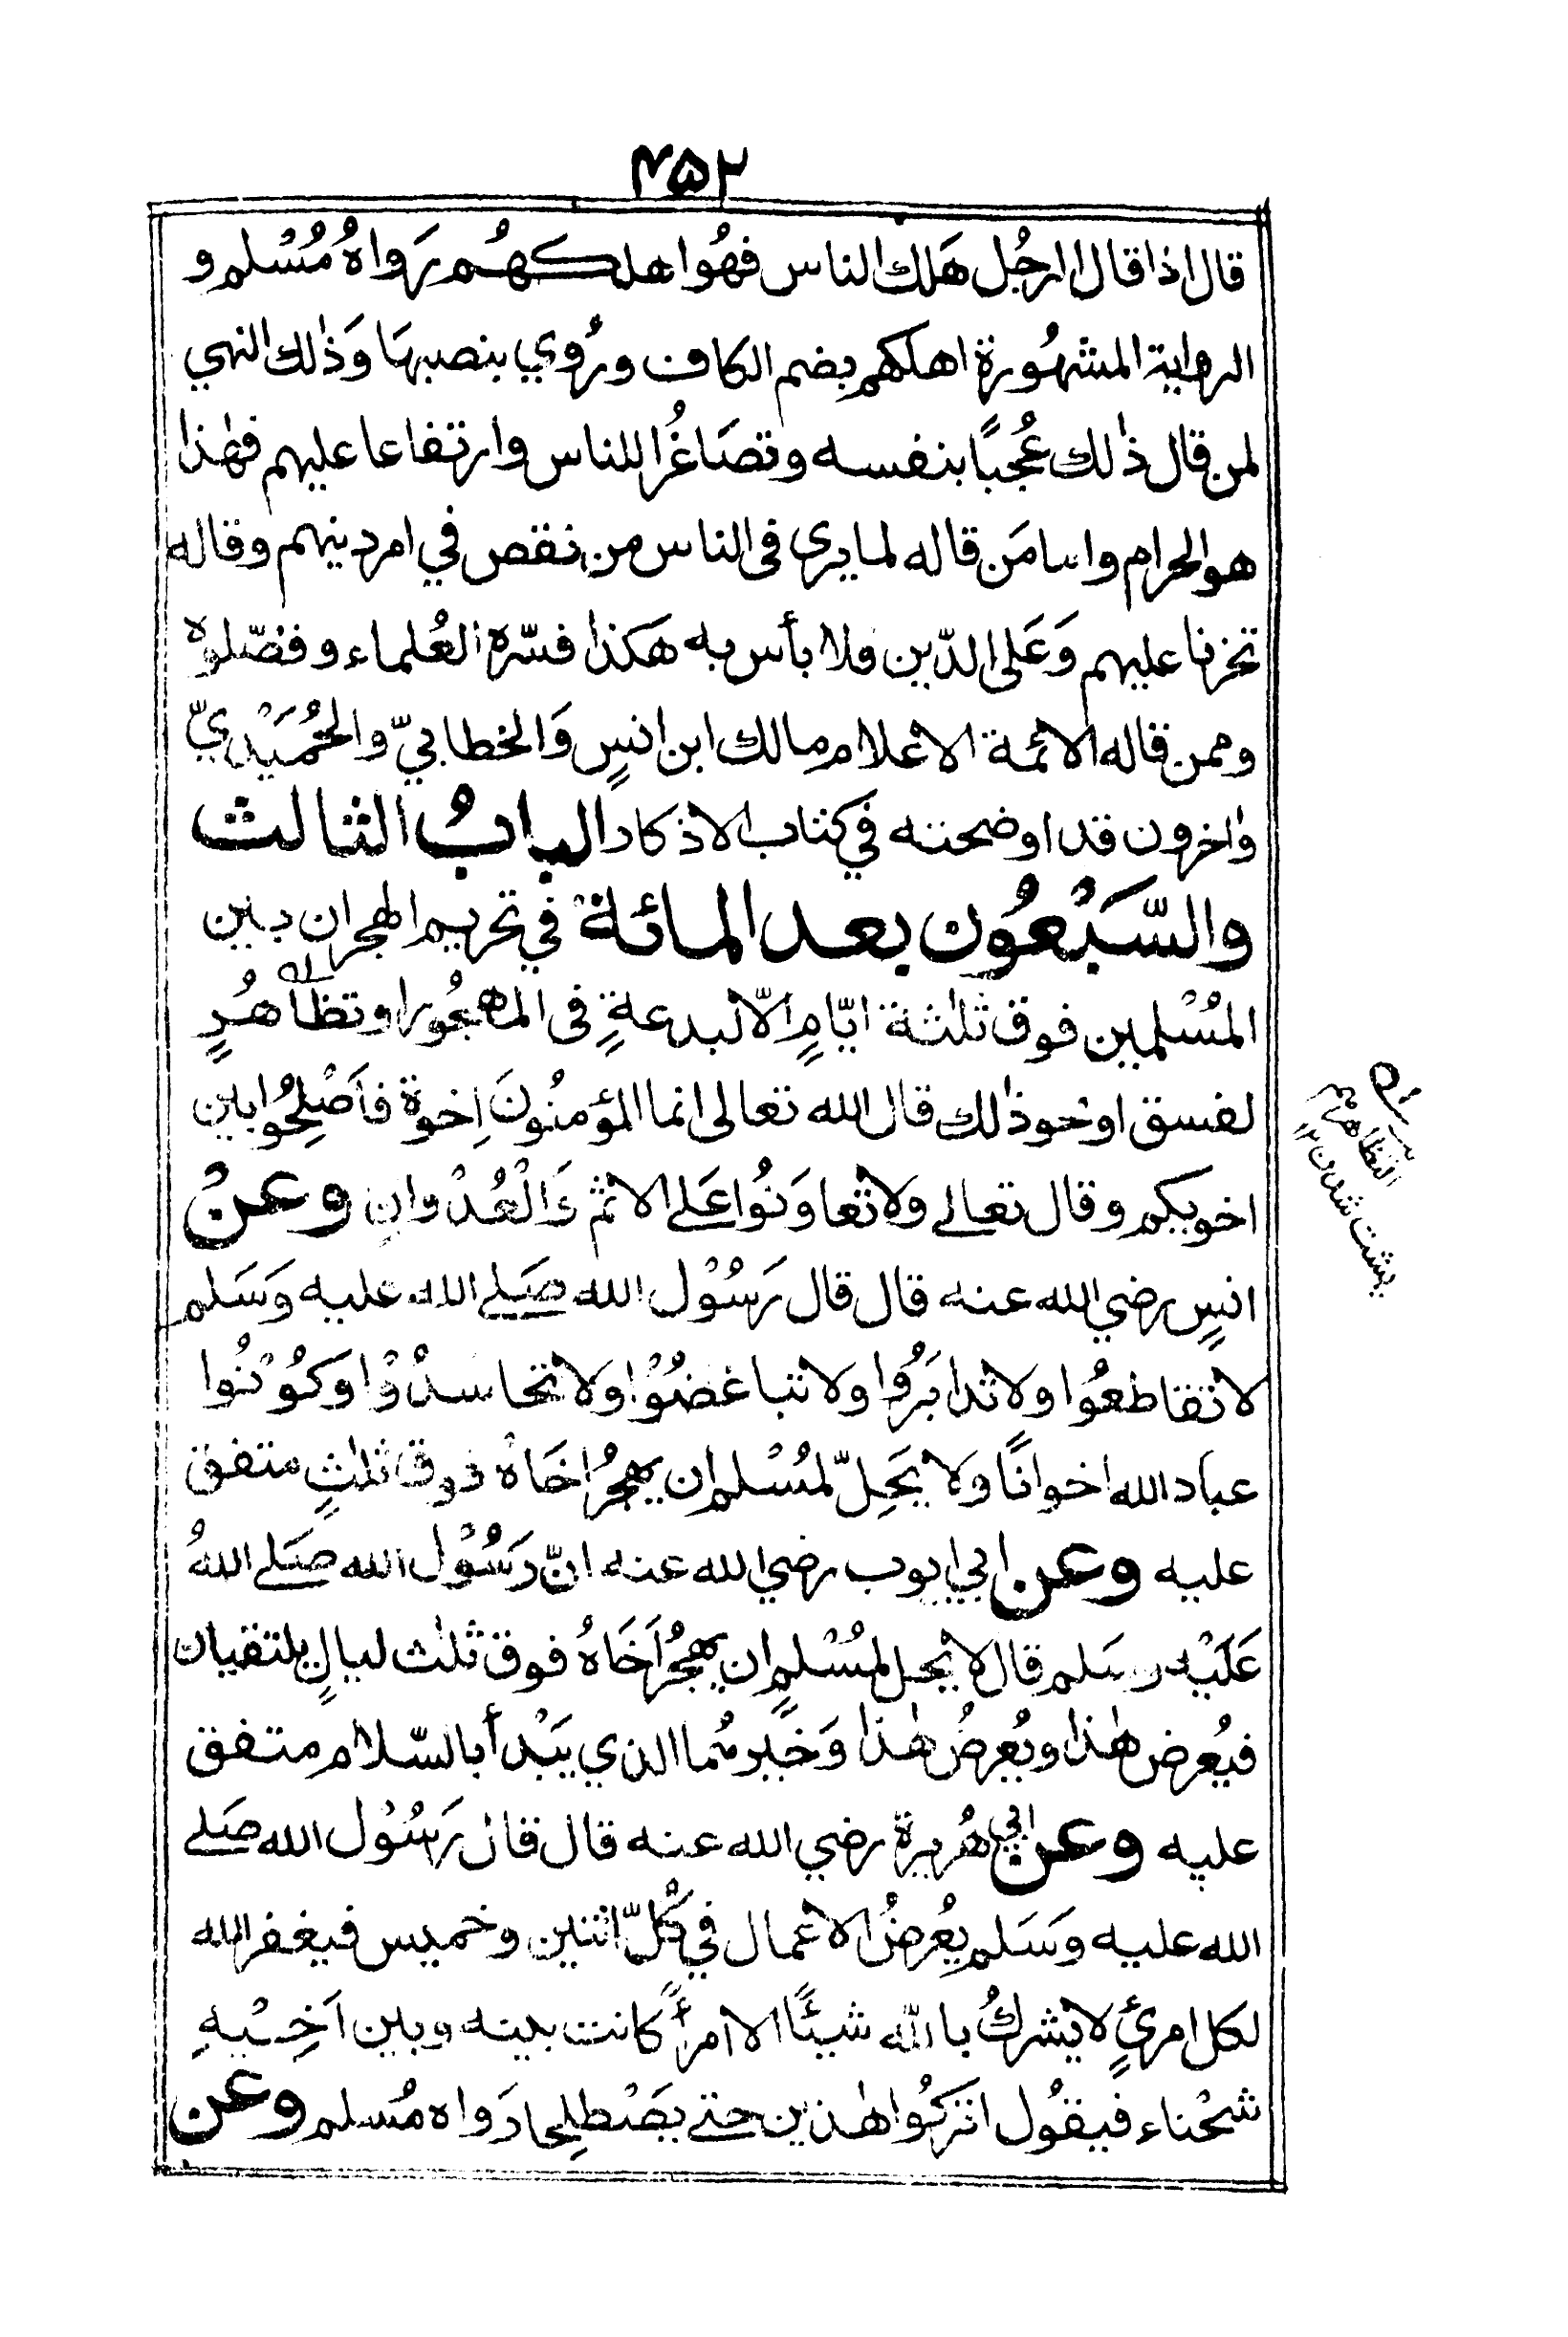 ۴۵۲
قال اذا قال الرجُل هَلك الناس فهُوا هلكهُم رَواهُ مُسْلم و
الرواية المشهُورة اهلكهم بضم الكاف ورُوي بنصبهَا وَذٰلك النهي
لمن قال ذٰلك عُجبًا بنفسه وتصَاغُرا للناس وارتفاعا عليهم فهٰذا
هو الحرام واما مَن قاله لما يرى فى الناس من نقص في امر دينهم وقاله
تحزنا عليهم وَعَلى الدّين فلا بأس به هَكذا فسّره العُلماء وفصّلوه
وممن قاله الائمة الاعلام مالك ابن انسٍ وَالخطابيّ والحُمَيْديّ
واٰخرون قد اوضحته في كتاب الاذكار البابُ الثالث
والسَّبْعُون بعد المائة في تحريم الهجران بين
المُسْلمين فوق ثلٰثة ايّامٍ الّا لبدعةٍ فى المهجُور او تظاهُرٍ
لفسق او نحو ذٰلك قال الله تعالى انما المؤمنُونَ اِخوة فاَصْلِحُوا بين
اخويكم وقال تعالے ولا تعاوَنُوا عَلے الاثم وَالْعُدْوانِ وعنْ
انسٍ رضي الله عنه قال قال رَسُوْل الله صَلے الله عليه وَسَلم
لا تقاطعُوا ولا تدابَرُوا ولا تباغضُوْا ولا تحاسدُوْا وكُوْنُوا
عباد الله اخوانًا ولا يَحِلّ لمُسْلم ان يهجُر اخَاهُ فوق ثلٰثٍ متفق
عليه وعن ابي ايوب رضي الله عنه انّ رَسُوْل الله صَلے اللهُ
عَلَيْه وسَلم قال لا يحل لمُسْلمٍ ان يهجُر اَخَاهُ فوق ثلٰث ليالٍ يلتقيان
فيُعرض هٰذا ويُعرضُ هٰذا وَخيرهُما الذي يَبْدأ بالسّلام متفق
عليه وعن ابي هُريرة رضي الله عنه قال قال رَسُوْل الله صَلے
الله عليه وَسَلم يُعْرضُ الاعمال في كُلّ اثنين وخميس فيغفر الله
لكل امرئٍ لا يشركُ بالله شيئًا الا امرأً كانت بينه وبين اَخِيْهِ
شحْناء فيقُول اتركُوا هٰذين حتے يصَْطلحا رَواه مُسلم وعن
التظاهر
پشت شدن ١٢